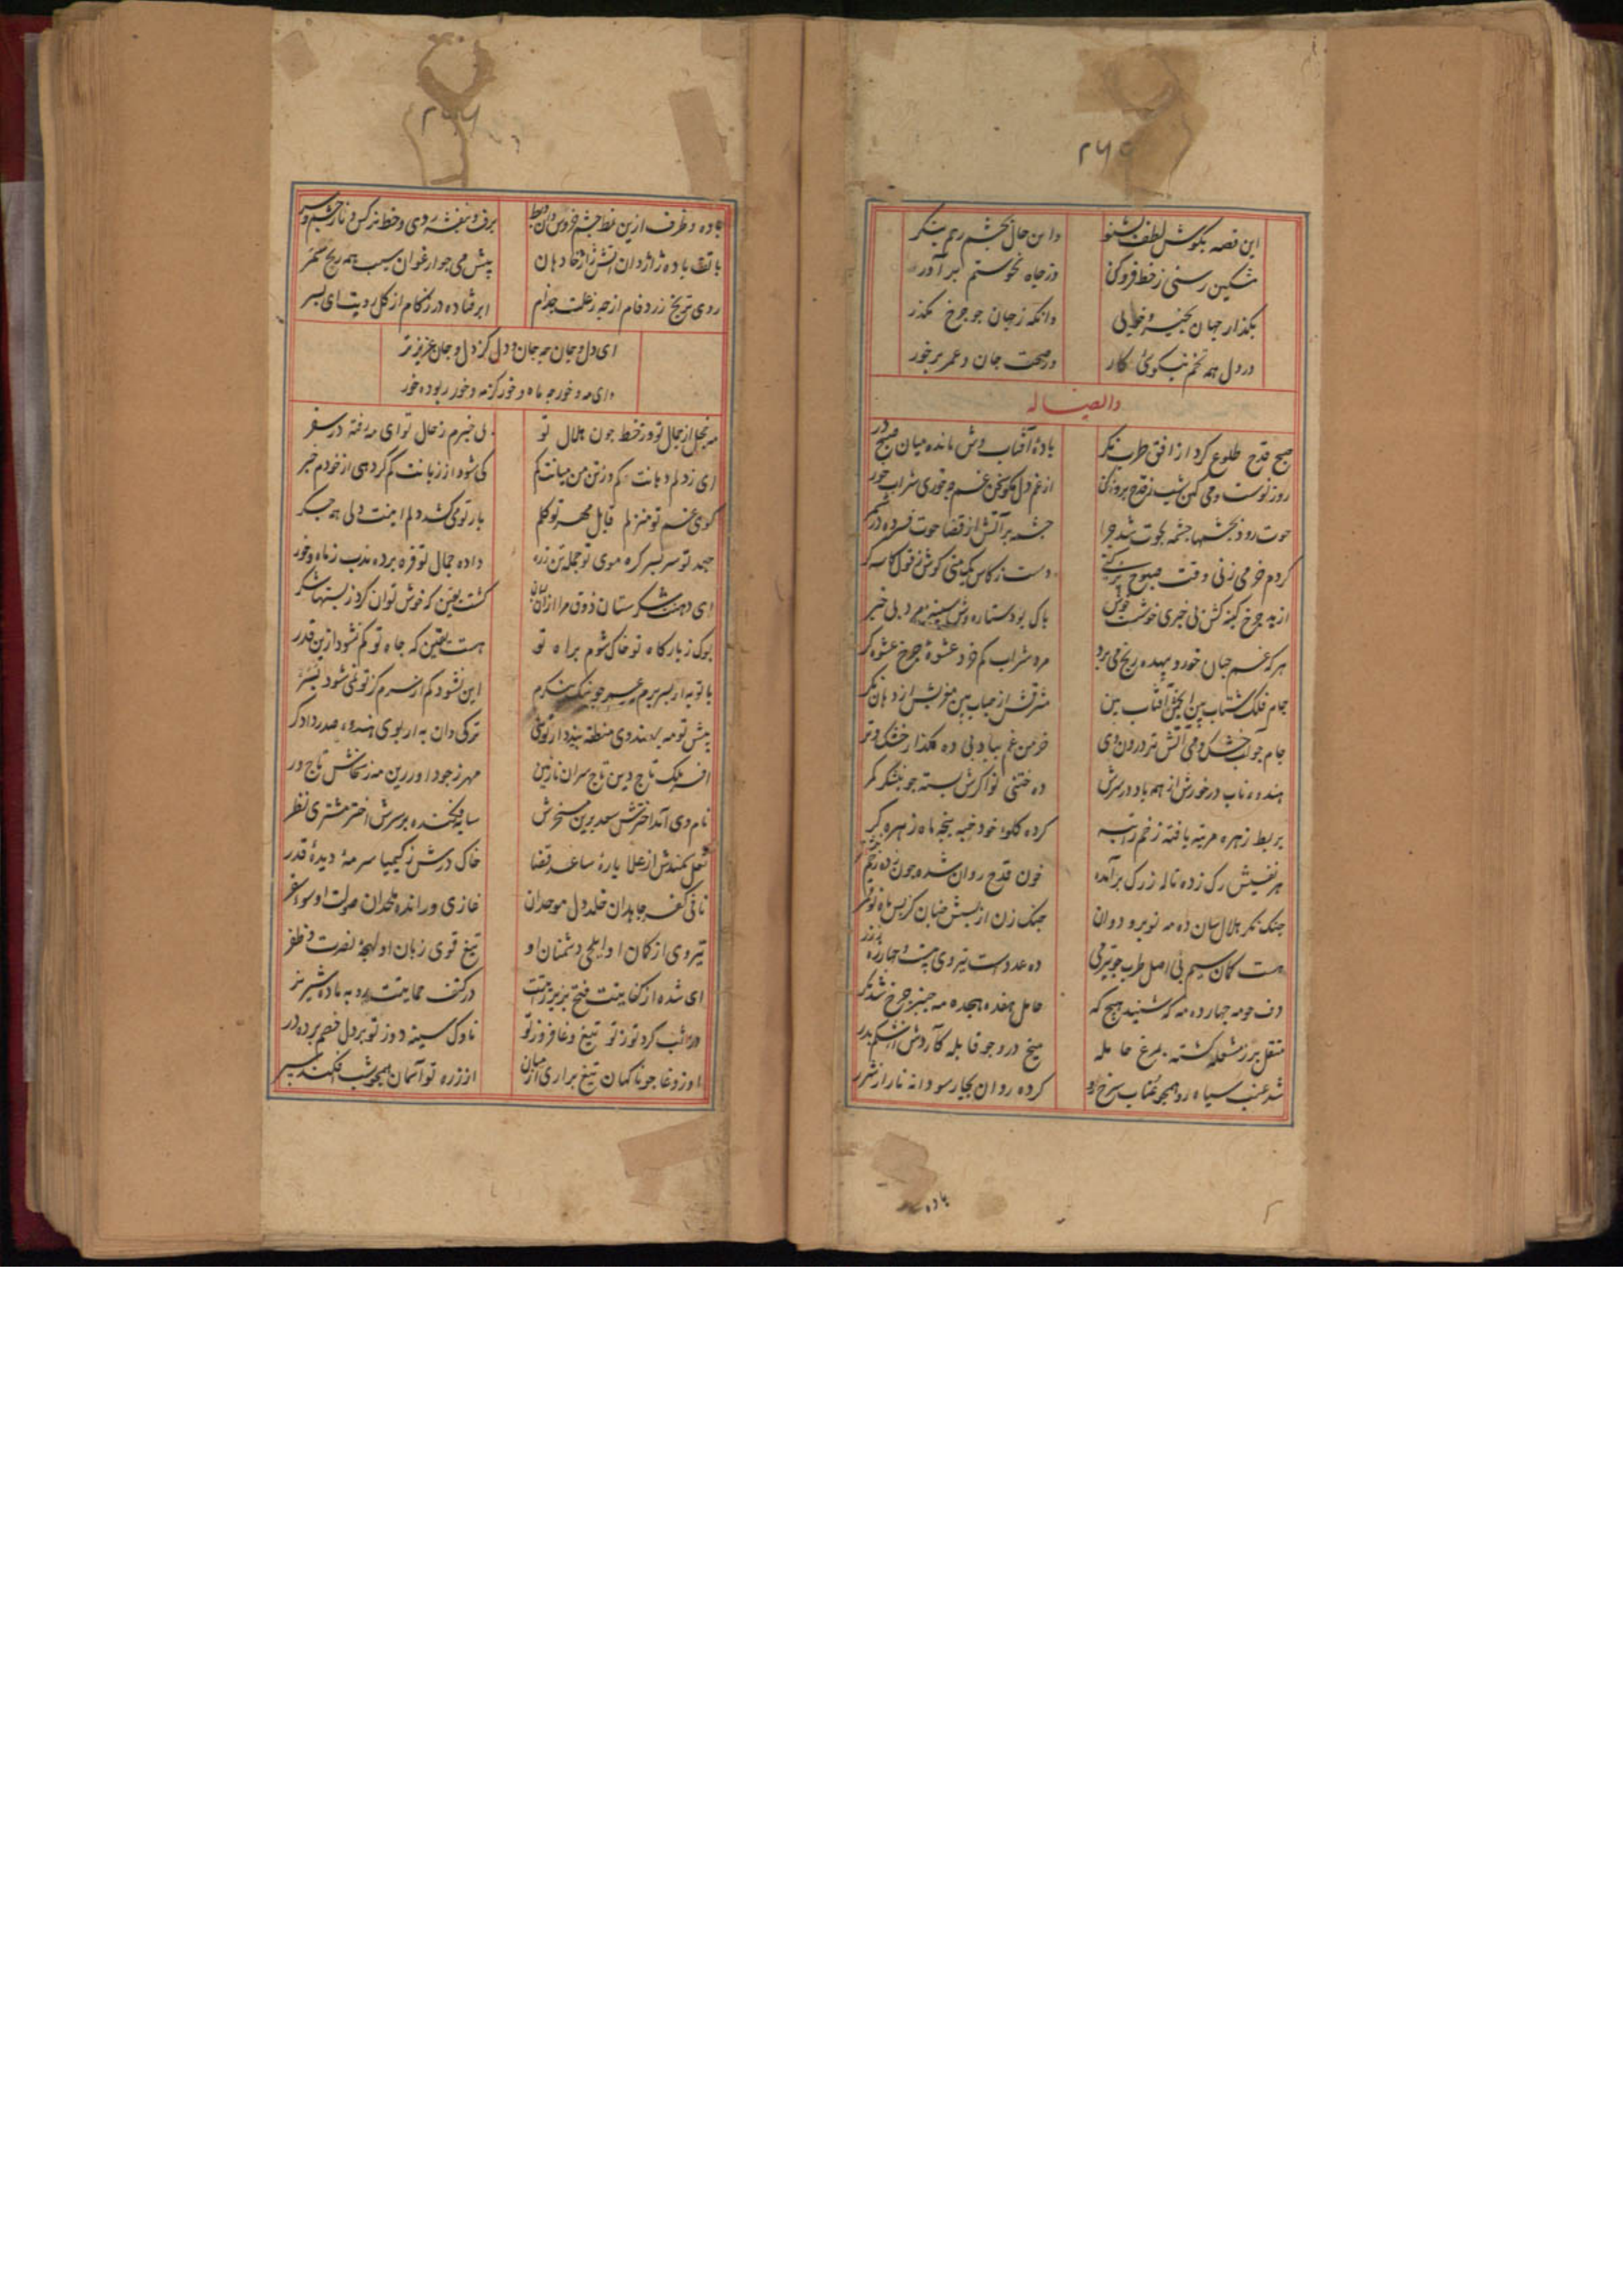 ۲۶۵
این قصه بگوش لطف بشنو واین حال بچشم رحم بنگر
مشکین رسنی ز خط فروکن وز چاه نحوستم برآور
بگذار جهان بخیره خوبی وانگه ز جهان چو چرخ بگذر
در دل همه تخم نیکوئی کار وز صحت جان و عمر برخور
وایضا له
صبح قدح طلوع کرد از افق طرب نگر بادۀ آفتاب وش مانده میان صبح در
روز نوست ومی کهن شب ز قدح بروزکن از غم دل مگو سخن غم چه خوری شراب خور
حوت رود بچشمها چشمه بحوت شد چرا چشمه پر آتش از قضا حوت فسرده در شمر
کردم خر می زنی وقت صبوح دست ز کاس یکمنی کوش ز قول کاسه گر
از بد چرخ کینه کش بی خبری خوشست پاک بود ستاره وش بی خبر
هر که غم جهان خورد بیهده رنج می برد مرد شراب کم خرد عشوۀ چرخ عشوه گر
جام فلک شتاب بین آفتاب بین مشرقش از حباب بین مغربش از دهان نگر
جام چو آب خشک و می آتش تر درون وی خرمن غم بباد بی ده مگذار خشک و تر
هندوء ناب در خورش از همه باد در سرش ده ختنی نوا گرش بسته چو نیشکر کمر
بربط زهره مرتبه یافته زخم کرده گلوء خود پنجه ماه زهره گر
هر نفسیش رک زده ناله ز رک برآمده خون قدح روان شده چون ده زخم
چنک نگر هلال سان ده مه نو برو دوان چنک زن از پسش چنان کز پس ماه نو قمر
هست کمان سیم پی اصل طرب چو تیر می ده عددست تیر وی بیست و چهار
دف چو مه چهارده مه که شنید هیچ که حامل هفده هیجده مه چنبر چرخ شد نگر
منقل پر ز مشعله گشته مرغ حامله سیخ درو چو قابله کآردش از شکم بدر
شد عنب سیاه رو همچو عناب سرخ رو کرده روان بچارسو دانه نار از شرر
باده
۲۶۶
باده و ظرف ازین نمط چشم خروس دان و بط برف و بنفشه روی و خط نرگس و نار چشم و بر
با تف باده ژاژ دان آتش ژاژخا دهان پیش می چو ارغوان سیب همه رنج مختصر
روی ترنج زرد فام از چه ز علت جذام ابر فتاده در زکام از گل رویت ای پسر
ای دل و جان چه جان و دل کز دل و جان عزیزتر
وای مه و خور چه ماه و خور کز مه و خور ربوده خور
مه خجل از جمال تو وز خط چون هلال تو بی خبرم ز حال تو ای مه رفته در سفر
ای ز دلم دهانت کم وز تن من میانت کم کی شود از زبانت کم گر دهی از خودم خبر
کوی غم تو منزلم قابل مهر تو گلم بار تو می کشد دلم اینت دلی همه جگر
جعد تو سربسر گره موی تو جمله تن زره داده جمال تو فره برده مدب ز ماه و خور
ای دهنت شکرستان ذوق مرا ازان گشت یقین که خوش توان کرد ز پستها شکر
بو که ز بارگاه تو خاک شوم براه تو هست یقین که جاه تو کم نشود ازین قدر
با تو به ار بسر برم این نشود کم از سرم کز تو نمی شود بسر
پیش تو مه بهندوی منطقه بندد ار توئی ترکی دان به ار بوی هندوء صدر دادگر
افسر ملک تاج دین تاج سران نازنین مهر ز جود او زرین مه ز سخاش تاجور
نام وی آمد اخترش سعد برین مسخرش سایه فکنده بر سرش اختر مشتری نظر
نعل سمندش از علا یارۀ ساعد قضا خاک درش ز کیمیا سرمۀ دیدۀ قدر
نافی کفر جاهدان خلد دل موحدان غازی و رانده ملحدان صولت او سوء سقر
تیر وی از کمان او ایلچی دشمنان او تیغ قوی زبان او لهجۀ نصرت و ظفر
ای شده از کفایتت فتح بزیر رایتت در کنف حمایتت روبه ماده شیر نر
رایت گرد توز تو تیغ وغا فروز تو ناوک سینه دوز تو بر دل خصم پرده در
روز وغا چو ناگهان تیغ براری از میان از زره تو آسمان همچو شب افکند سپر